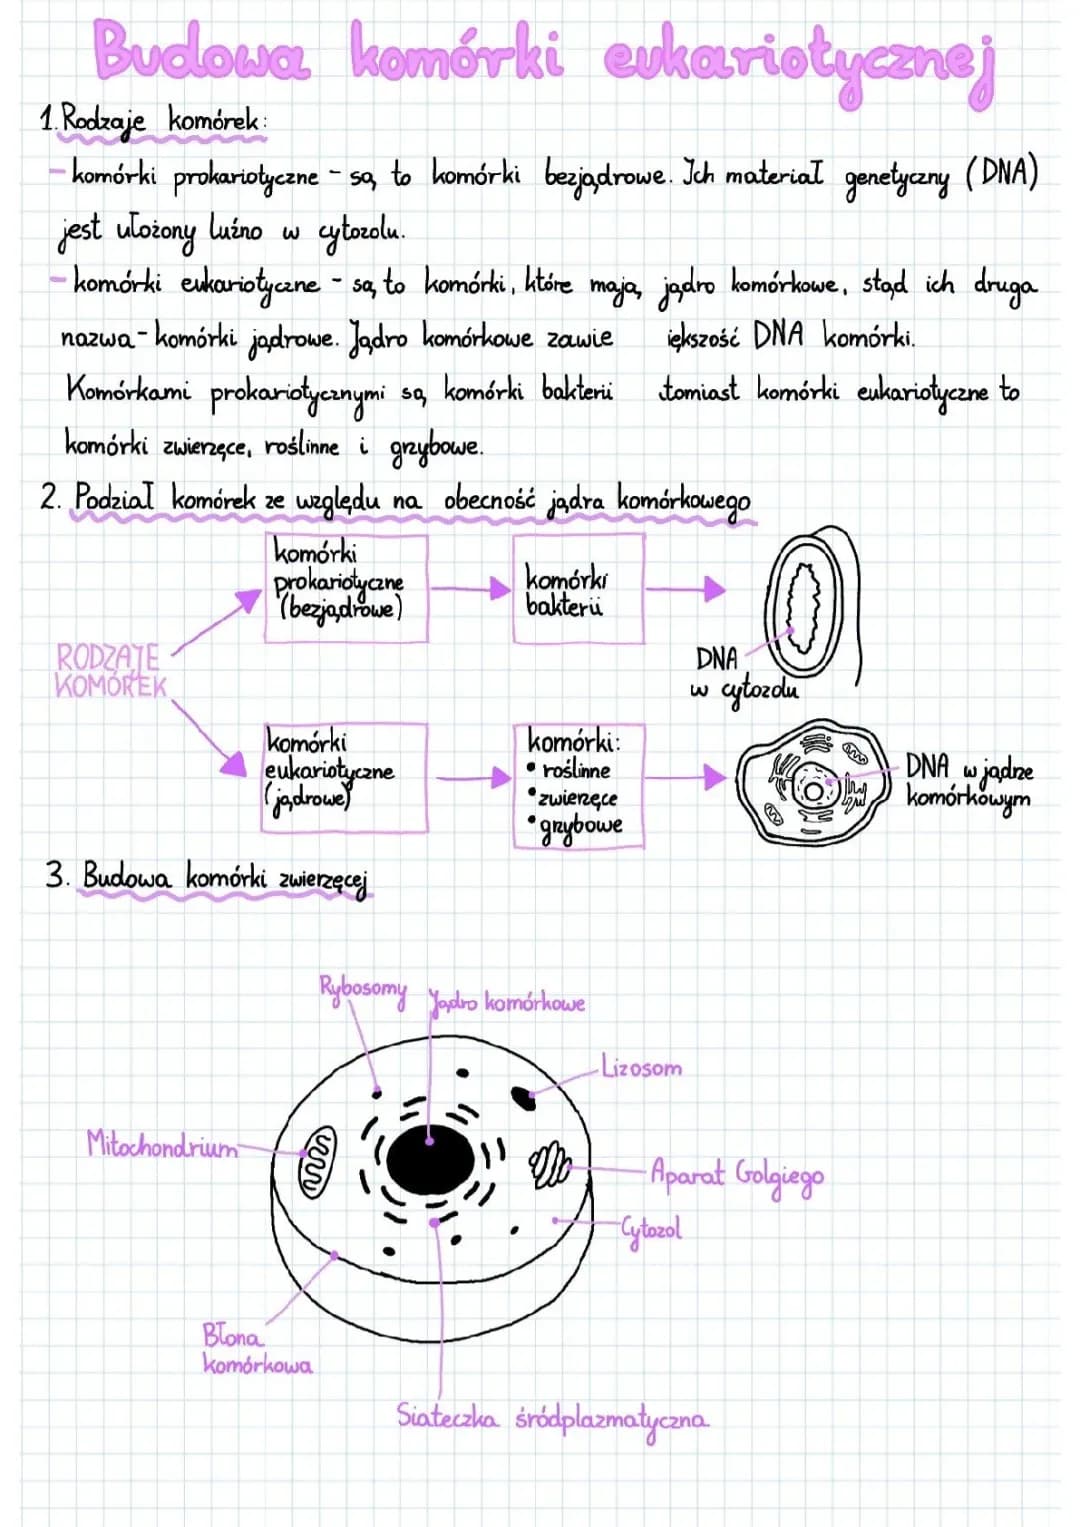 Budowa komórki eukariotycznej
1. Rodzaje komórek:
- komórki prokariotyczne - są to komórki bezjądrowe. Ich materiał genetyczny (DNA)
jest ułożony luźno w cytozolu.
- komórki eukariotyczne - są to komórki, które mają jądro komórkowe, stąd ich druga
nazwa - komórki jądrowe. Jądro komórkowe zawie iększość DNA komórki.
Komórkami prokariotycznymi są komórki bakterii tomiast komórki eukariotyczne to
komórki zwierzęce, roślinne i grzybowe.
2. Podział komórek ze względu na obecność jądra komórkowego
RODZAJE
KOMÓREK
komórki
prokariotyczne
(bezjądrowe)
komórki
bakterii
DNA
w cytozolu
komórki
eukariotyczne
(jądrowe)
komórki:
• roślinne
• zwierzęce
• grzybowe
DNA w jądrze
komórkowym
3. Budowa komórki zwierzęcej
Rybosomy
Jądro komórkowe
Lizosom
Mitochondrium
Aparat Golgiego
Cytozol
Błona
komórkowa
Siateczka śródplazmatyczna